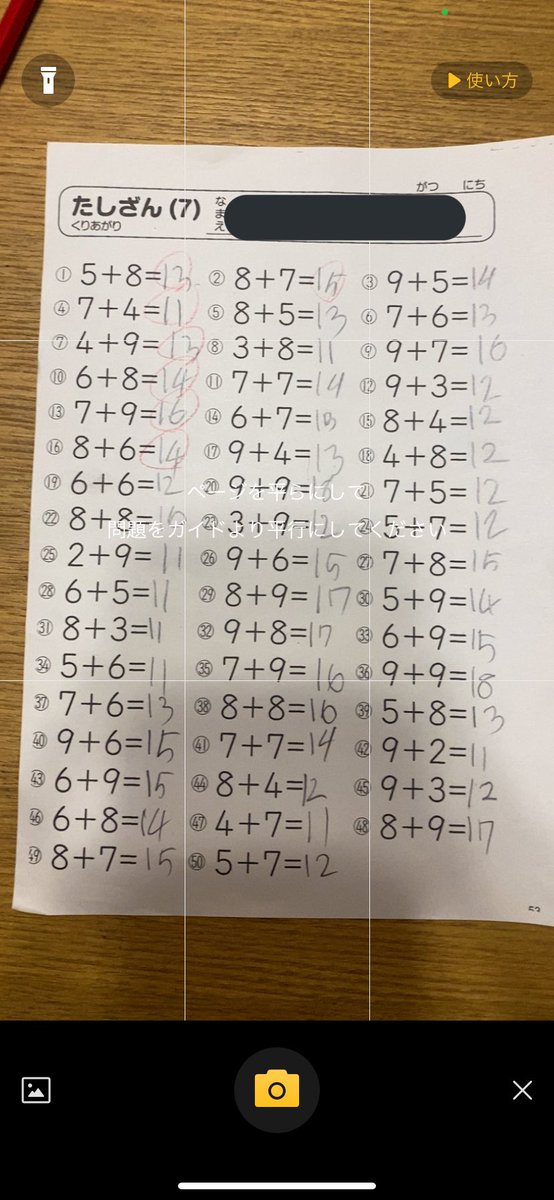 使い方
がつ にち
たしざん(7)
くりあがり
なまえ
① 5+8=13 ② 8+7=15 ③ 9+5=14
④ 7+4=11 ⑤ 8+5=13 ⑥ 7+6=13
⑦ 4+9=13 ⑧ 3+8=11 ⑨ 9+7=16
⑩ 6+8=14 ⑪ 7+7=14 ⑫ 9+3=12
⑬ 7+9=16 ⑭ 6+7=13 ⑮ 8+4=12
⑯ 8+6=14 ⑰ 9+4=13 ⑱ 4+8=12
⑲ 6+6=12 ⑳ 9+9= ㉑ 7+5=12
ページを平らにして
㉒ 8+8=16 ㉓ 3+9=12 ㉔ 5+7=12
問題をガイドより平行にしてください
㉕ 2+9=11 ㉖ 9+6=15 ㉗ 7+8=15
㉘ 6+5=11 ㉙ 8+9=17 ㉚ 5+9=14
㉛ 8+3=11 ㉜ 9+8=17 ㉝ 6+9=15
㉞ 5+6=11 ㉟ 7+9=16 ㊱ 9+9=18
㊲ 7+6=13 ㊳ 8+8=16 ㊴ 5+8=13
㊵ 9+6=15 ㊶ 7+7=14 ㊷ 9+2=11
㊸ 6+9=15 ㊹ 8+4=12 ㊺ 9+3=12
㊻ 6+8=14 ㊼ 4+7=11 ㊽ 8+9=17
㊾ 8+7=15 ㊿ 5+7=12